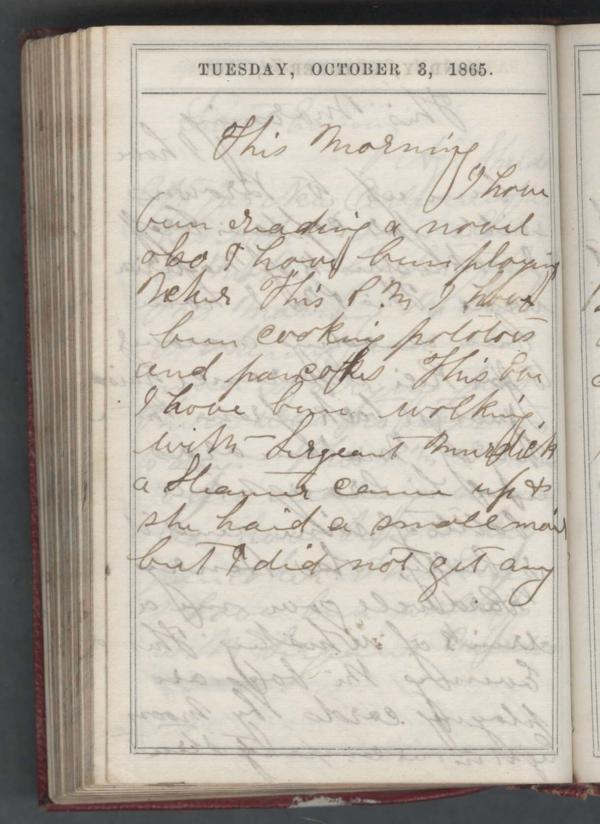 TUESDAY, OCTOBER 3, 1865.
This Morning
I have
bun reading a novel
also I have bun playing
This P.M I have
bun cooking pototois
and pancakes This Eve
I have bun walking
with Sergeant Murdick
a Steamer came up &
she haid a small mail
but I did not get any